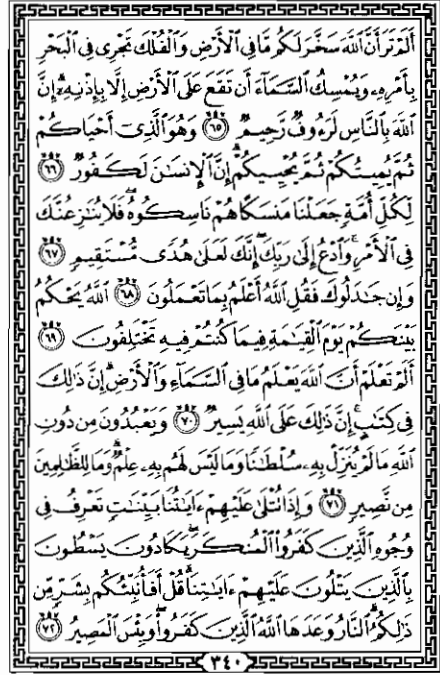 أَلَمْ تَرَ أَنَّ ٱللَّهَ سَخَّرَ لَكُم مَّا فِي ٱلْأَرْضِ وَٱلْفُلْكَ تَجْرِي فِي ٱلْبَحْرِ
بِأَمْرِهِۦ وَيُمْسِكُ ٱلسَّمَآءَ أَن تَقَعَ عَلَى ٱلْأَرْضِ إِلَّا بِإِذْنِهِۦٓ ۗ إِنَّ
ٱللَّهَ بِٱلنَّاسِ لَرَءُوفٌ رَّحِيمٌ ٦٥ وَهُوَ ٱلَّذِيٓ أَحْيَاكُمْ
ثُمَّ يُمِيتُكُمْ ثُمَّ يُحْيِيكُمْ ۗ إِنَّ ٱلْإِنسَٰنَ لَكَفُورٌ ٦٦
لِكُلِّ أُمَّةٍ جَعَلْنَا مَنسَكًا هُمْ نَاسِكُوهُ ۖ فَلَا يُنَٰزِعُنَّكَ
فِي ٱلْأَمْرِ ۚ وَٱدْعُ إِلَىٰ رَبِّكَ ۖ إِنَّكَ لَعَلَىٰ هُدًى مُّسْتَقِيمٍ ٦٧
وَإِن جَٰدَلُوكَ فَقُلِ ٱللَّهُ أَعْلَمُ بِمَا تَعْمَلُونَ ٦٨ ٱللَّهُ يَحْكُمُ
بَيْنَكُمْ يَوْمَ ٱلْقِيَٰمَةِ فِيمَا كُنتُمْ فِيهِ تَخْتَلِفُونَ ٦٩
أَلَمْ تَعْلَمْ أَنَّ ٱللَّهَ يَعْلَمُ مَا فِي ٱلسَّمَآءِ وَٱلْأَرْضِ ۗ إِنَّ ذَٰلِكَ
فِي كِتَٰبٍ ۚ إِنَّ ذَٰلِكَ عَلَى ٱللَّهِ يَسِيرٌ ٧٠ وَيَعْبُدُونَ مِن دُونِ
ٱللَّهِ مَا لَمْ يُنَزِّلْ بِهِۦ سُلْطَٰنًا وَمَا لَيْسَ لَهُم بِهِۦ عِلْمٌ ۗ وَمَا لِلظَّٰلِمِينَ
مِن نَّصِيرٍ ٧١ وَإِذَا تُتْلَىٰ عَلَيْهِمْ ءَايَٰتُنَا بَيِّنَٰتٍ تَعْرِفُ فِي
وُجُوهِ ٱلَّذِينَ كَفَرُوا۟ ٱلْمُنكَرَ ۖ يَكَادُونَ يَسْطُونَ
بِٱلَّذِينَ يَتْلُونَ عَلَيْهِمْ ءَايَٰتِنَا ۗ قُلْ أَفَأُنَبِّئُكُم بِشَرٍّ مِّن
ذَٰلِكُمُ ۗ ٱلنَّارُ وَعَدَهَا ٱللَّهُ ٱلَّذِينَ كَفَرُوا۟ ۖ وَبِئْسَ ٱلْمَصِيرُ ٧٢
٣٤٠